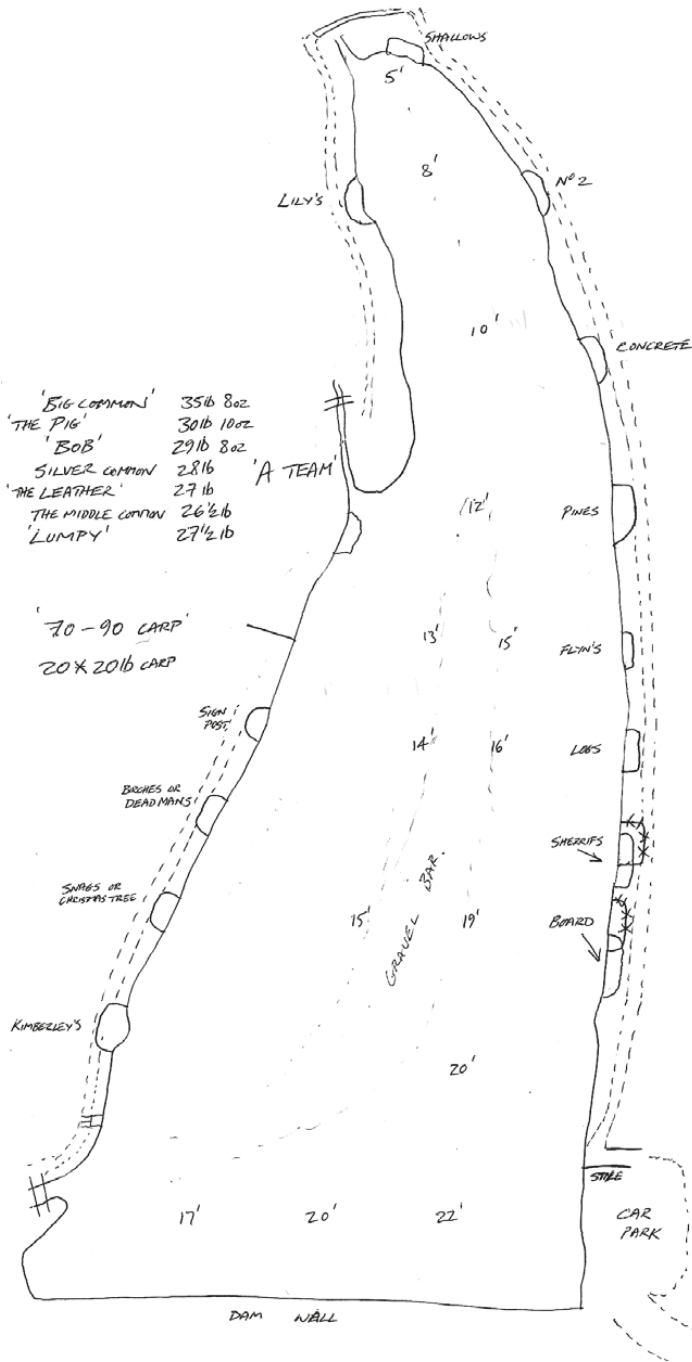 SHALLOWS
5'
8'
Nº 2
LILY'S
10'
CONCRETE
'BIG COMMON' 35lb 8oz
'THE PIG' 30lb 10oz
'BOB' 29lb 8oz
SILVER COMMON 28lb
'THE LEATHER' 27lb
THE MIDDLE COMMON 26½lb
'LUMPY' 27½lb
'A TEAM'
12'
PINES
'70-90 CARP'
20 X 20lb CARP
13'
15'
FLYN'S
SIGN
POST
14'
16'
LOGS
BIRCHES OR
DEADMANS
SHERRIFS
SNAGS OR
CHRISTMAS TREE
15'
GRAVEL BAR.
19'
BOARD
KIMBERLEY'S
20'
STILE
17'
20'
22'
CAR
PARK
DAM WALL